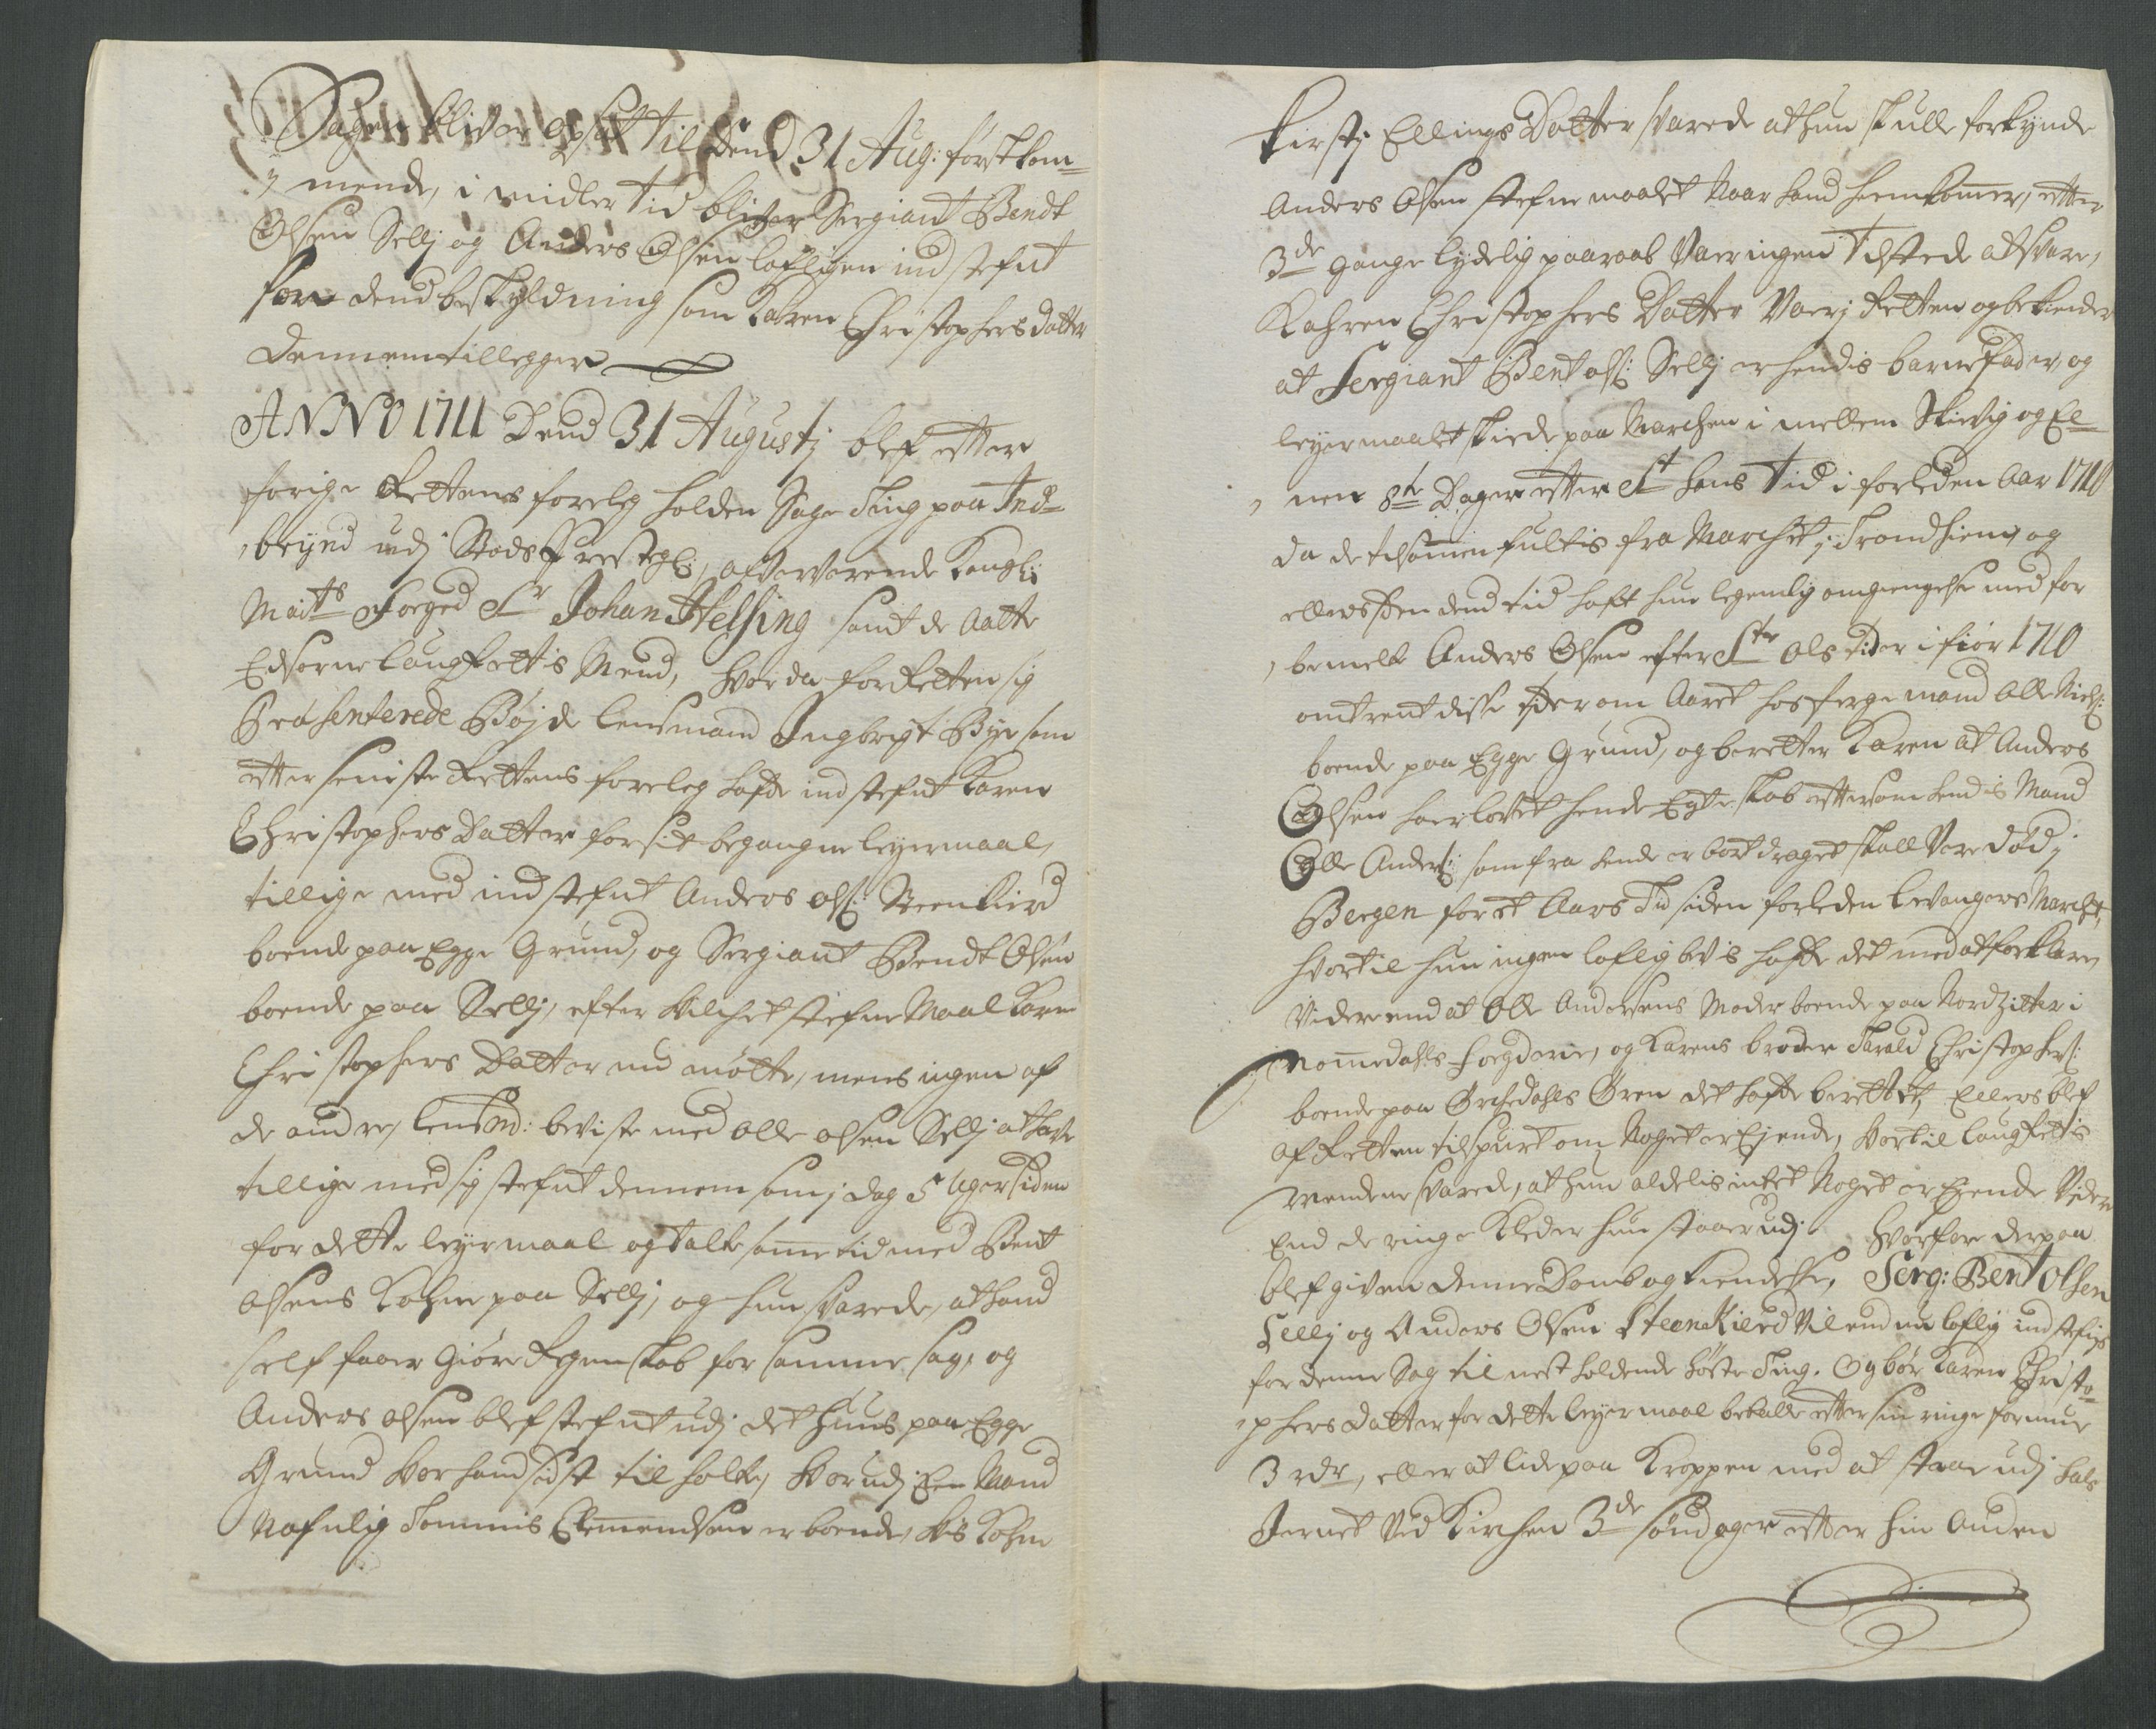 Sagen bliver opsat til dend 31 Aug: førstkom=
mende, i midler tid bliver Sergiant Bendt
Olsen Sellj og Anders Olsen lofligen ind stefnt
for dend beskyldning som Karen Christophersdatter
dennem tillegger
ANNO 1711 Dend 31 Augustj blef etter
forige Rettens foreleg holden Sage Ting paa Ind=
brynd udj Stods Prestegl:, ofververende Kongl:
Maits Foged Sr Johan Helsing samt de Aatte
Edsorne laugrettis Mend, hvor da for Retten sig
Præsenterede Bøjde lensmand Ingbrigt Bye som
etter seniste Rettens foreleg hafde ind stefnt Karen
Christophers Datter for sit begangne leyermaal,
tillige med ind stefnt Anders Ols: Steenkierd
boende paa Egge Grund, og Sergiant Bendt Olsen
boende paa Sellj, efter hvilchet stefne Maal Karen
Christophers Datter nu møtte, mens ingen af
de andre, lensmd: beviste med Olle Olsen Sellj at hafve
tillige med sig stefnt dennem som j dag 5 Uger siden
for dette leyermaal og talte samme tid med Bent
Olsens Kohne paa Sellj, og hun svarede, at hand
self faar giøre Regenskab for samme sag, og
Anders Olsen blef stefnt udj det Huus paa Egge
Grund hvor hand sidst til holte, hvor udj Een Mand
Nafnlig Tommis Clemendsen er boende, hvis Kohne
Kirstj Ellings Datter svarede at hun skulle forkynde
Anders Olsen stefne maalet Naar hand hiemkommer, etter
3de gange lydelig paaraab Var ingen Tilstede at svare,
Kahren Christophers Datter Var j Retten og bekiender
at Sergiant Bent Ols: Sellj er hendis barnefader, og
leyermaalet skiede paa Marchen i mellem Skievig og El=
nen 8te Dager etter St Hans Tid i forleden Aar 1710
da de tilsammen fultis fra Marchet j Trondhiem, og
ellers siden dend tid haft hun legemlig omgiengelse med for
bemelte Anders Olsen efter Ste Ols tider i fior 1710
omtrent disse tider om Aaret hos ferge mand Olle Niels:
boende paa Egge Grund, og beretter Karen at Anders
Olsen har lovet hende Egteskab ettersom hendis Mand
Olle Anders: som fra hende er bort draget skall Vere død j
Bergen for et Aars Tid siden forleden Levangers Marchet,
hvortil hun ingen loflig bevis hafde det med at forklare,
Videre end at Olle Andersens Moder boende paa Nord
Nommedahls Fogderie, og Karens broder Tarald Christophers:
boende paa Orchedahls Øren det hafde berettet, Ellers blef
af Retten tilspurt om Noget er Ejende, hvortil laugrettis
mendene svarede, at hun aldelis intet Noget er Eiende Videre
End de ringe Kleder hun staar udj. Hvorfore derpaa
blef given denne Domb og Kiendelse, Serg: Bent Olsen
Sellj og Anders Olsen SteenKierd Vil end nu loflig ind stefnis
for denne Sag til nest holdende høste Ting. Og bør Karen Christo=
phers datter for dette leyermaal betalle etter sin ringe formue
3 rdr, eller at lide paa Kroppen med at staae udj hals
Jernet Ved Kirchen 3de søndager etter hin Anden